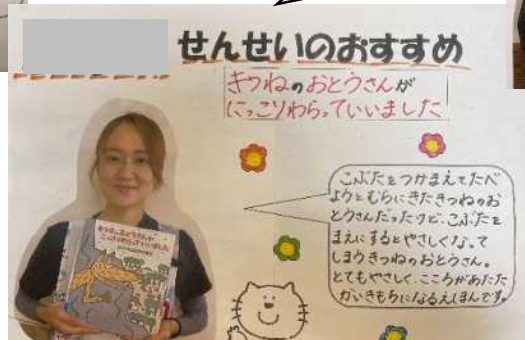 せんせいのおすすめ
きつねのおとうさんが
にっこりわらっていいました
こぶたをつかまえてたべ
ようとむらにきたきつねのお
とうさんだったけど、こぶたを
まえにするとやさしくなって
しまうきつねのおとうさん。
とてもやさしく、こころがあたた
かいきもちになるえほんです。
きつねのおとうさんが
にっこりわらっていいました